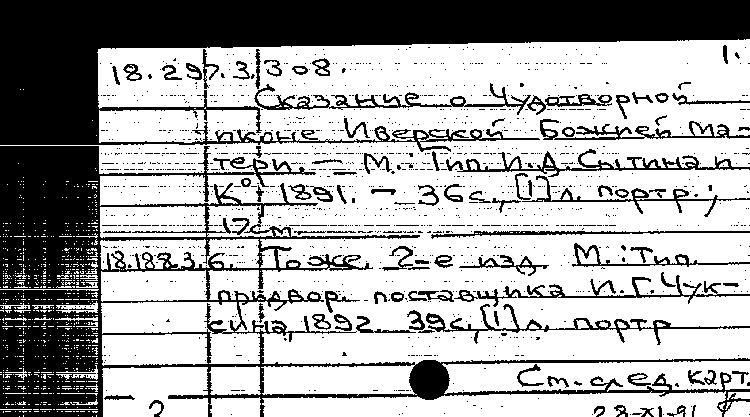 1.
18.297.3.308.
Сказание о Чудотворной
иконе Иверской Божией Ма-
тери. — М.: Тип. И.Д. Сытина и
К°, 1891. – 36с., [1] л. портр.;
17см.
18.188.3.6. То же. 2-е изд. М.: Тип.
придвор. поставщика И.Г. Чук-
сина, 1892. 39с., [1] л. портр
См. след. карт.
28-XI-91